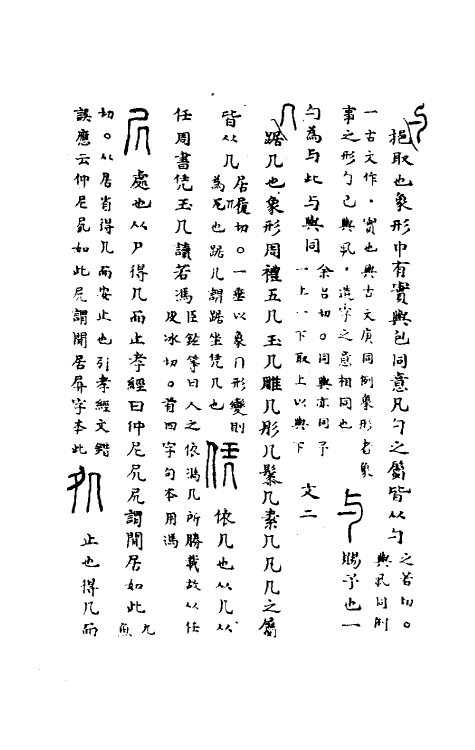 勺 挹取也象形中有實與包同意凡勺之屬皆从勺 之若切。
一古文作•實也與古文庚同例象形者象
事之形勺已與•造字之意相同也 与 賜予也一
勺為与此与與同 余呂切。同與亦同予
一上一下取上以與下 文二
几 踞几也象形周禮五几玉几雕几彤几鬃几素几凡几之屬
皆从几 居履切。一垂以象冂形變則
為兀也踞几謂踞坐凭几也 凭 依几也从几从
任周書凭玉几讀若馮 臣鉉等曰人之依馮几所勝載故从任
皮冰切。首四字句本用馮
凥 處也从尸得几而止孝經曰仲尼凥凥謂閒居如此 九魚
切。从居省得几而安止也引孝經文錯
誤應云仲尼凥如此凥謂閒居凥字本此 処 止也得几而